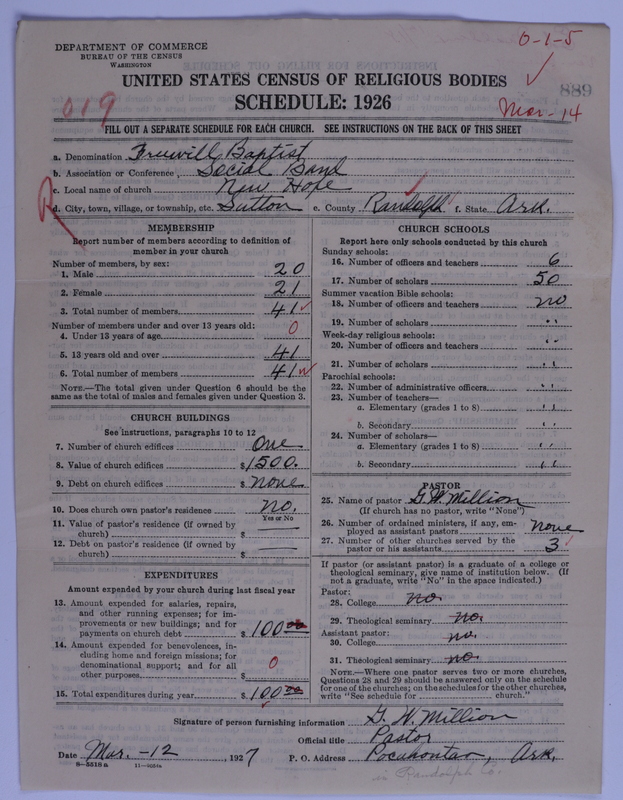 DEPARTMENT OF COMMERCE
BUREAU OF THE CENSUS
WASHINGTON
0-1-5
UNITED STATES CENSUS OF RELIGIOUS BODIES
889
019
SCHEDULE: 1926
Mar-14
FILL OUT A SEPARATE SCHEDULE FOR EACH CHURCH. SEE INSTRUCTIONS ON THE BACK OF THIS SHEET
a. Denomination Freewill Baptist
b. Association or Conference, Social Band
c. Local name of church New Hope
R
d. City, town, village, or township, etc. Sutton e. County Randolph f. State Ark.
MEMBERSHIP
Report number of members according to definition of
member in your church
Number of members, by sex:
1. Male 20
2. Female 21
3. Total number of members 41
Number of members under and over 13 years old:
4. Under 13 years of age 0
5. 13 years old and over 41
6. Total number of members 41
NOTE.—The total given under Question 6 should be the
same as the total of males and females given under Question 3.
CHURCH BUILDINGS
See instructions, paragraphs 10 to 12
7. Number of church edifices One
8. Value of church edifices $1500.
9. Debt on church edifices $ None
10. Does church own pastor's residence no.
Yes or No
11. Value of pastor's residence (if owned by
church) $
12. Debt on pastor's residence (if owned by
church) $
EXPENDITURES
Amount expended by your church during last fiscal year
13. Amount expended for salaries, repairs,
and other running expenses; for im-
provements or new buildings; and for
payments on church debt $ 100 00
14. Amount expended for benevolences, in-
cluding home and foreign missions; for
denominational support; and for all
other purposes $ 0
15. Total expenditures during year $ 100 00
CHURCH SCHOOLS
Report here only schools conducted by this church
Sunday schools:
16. Number of officers and teachers 6
17. Number of scholars 50
Summer vacation Bible schools:
18. Number of officers and teachers no
19. Number of scholars ''
Week-day religious schools:
20. Number of officers and teachers ''
21. Number of scholars ''
Parochial schools:
22. Number of administrative officers ''
23. Number of teachers—
a. Elementary (grades 1 to 8) ''
b. Secondary ''
24. Number of scholars—
a. Elementary (grades 1 to 8) ''
b. Secondary ''
PASTOR
25. Name of pastor G. W. Million
(If church has no pastor, write "None")
26. Number of ordained ministers, if any, em-
ployed as assistant pastors none
27. Number of other churches served by the
pastor or his assistants 3
If pastor (or assistant pastor) is a graduate of a college or
theological seminary, give name of institution below. (If
not a graduate, write "No" in the space indicated.)
Pastor:
28. College no
29. Theological seminary no.
Assistant pastor:
30. College no.
31. Theological seminary no.
NOTE.—Where one pastor serves two or more churches,
Questions 28 and 29 should be answered only on the schedule
for one of the churches; on the schedules for the other churches,
write "See schedule for church."
Signature of person furnishing information G. W. Million
Official title Pastor
Date Mar. - 12, 1927 P. O. Address Pocahontas, Ark.
8-5518 a
in Randolph Co.